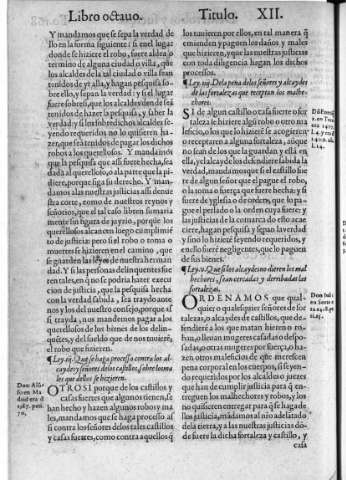 Libro octauo.
Titulo. XII.
Y mandamos que se sepa la verdad de
llo en la forma siguiente: si en el lugar
donde se hiziere el robo, fuere aldea o
termino de alguna ciudad o villa, que
los alcaldes de la tal ciudad o villa sean
tenidos de yr alla, y hagan pesquisa so
bre ello, y sepan la verdad: y si el lugar
fuere sobre si, que los alcaldes dende seã
tenidos de hazer la pesquisa, y saber la
verdad: y si los sobredichos alcaldes se
yendo requeridos no lo quisieren ha-
zer, que seã tenudos de pagar los dichos
robos a los querellosos. Y mandamos
que la pesquisa que assi fuere hecha, sea
dada al querelloso, o a la parte que la pi-
diere, porque siga su derecho. Y man-
damos a las nuestras justicias assi desde
esta corte, como de nuestros reynos y
señorios, que el tal caso libren sumaria
mente sin figura de juyzio, porque los
querellosos alcancen luego cumplimiẽ
to de justicia: pero si el robo o toma o
muertes se hizieren en el camino, que
se guarden las leyes de nuestra herman
dad. Y si las personas delinquentes fue
ren tales, en que no se podria hazer execu
cion de justicia, que la pesquisa hecha
con la verdad sabida, sea traydo ante
nos y los del nuestro consejo, porque assi
trayda, nos mandemos pagar a los
querellosos de los bienes de los delin-
quentes, y del sueldo que de nos tuuierẽ,
el robo que hizieren.
¶ Ley. iij. Que se haga processo contra los al-
caydes y señores de los castillos, sobre los ma
les que dellos se hizieren.
OTROSI porque de los castillos y
casas fuertes que algunos tienen, se
han hecho y hazen algunos robos y ma
les, mandamos que se haga processo assi
contra los señores de los tales castillos
y casas fuertes, como contra aquellos q̃
Don
ren Ma
drid era d
los tuuieren por ellos, en tal manera q̃
emienden y paguen los daños y males
que hizieren, y que las nuestras justicias
con toda diligencia hagan los dichos
processos.
¶ Ley. iiij. De la pena de los señores y alcaydes
de las fortalezas que receptan los malhe-
chores.
SI de algun castillo o casa fuerte o for
taleza se hiziere algũ robo o otro ma
leficio, o los que lo hiziere se acogieren
o receptaren a alguna fortaleza, aũque
no sean de los que la guardan y està en
ella, y el alcayde los defendiere sabida la
verdad, mandamos que si el castillo fue
re de algun señor que el pague el robo,
o la toma o fuerça que fuere hecha: y si
fuere de yglesia o de orden, que lo pa-
gue el perlado o la orden cuya fuere: y
las justicias de la comarca do esto acae
ciere, hagan pesquisa y sepan la verdad
y sino lo hizierẽ seyendo requeridos, y
en ello fuere negligentes, que lo paguen
de sus bienes.
¶ Ley. v. Que si los alcaydes no dieren los mal
hechores, sean cercadas y derribadas las
fortalezas.
ORDENAMOS que qual-
quier o qualesquier señores de for
talezas, o alcaydes de castillos, que de-
fendieren a los que matan hiriren o ro-
ban, o lleuan mugeres casadas o despo-
sadas, o otras mugeres por fuerça, o ha-
zen otros maleficios de que merescen
pena corporal en los cuerpos, si seyen-
do requeridos por los alcaldes o juezes
que han de cumplir justicia para q̃ en-
treguen los malhechores y robos, y los
no quisieren entregar para q̃ se haga de
llos justicia, mãdamos al nio adelantado
de la tierra, y a las nuestras justicias dõ-
de fuere la dicha fortaleza y castillo, y
casa
Don Iuã